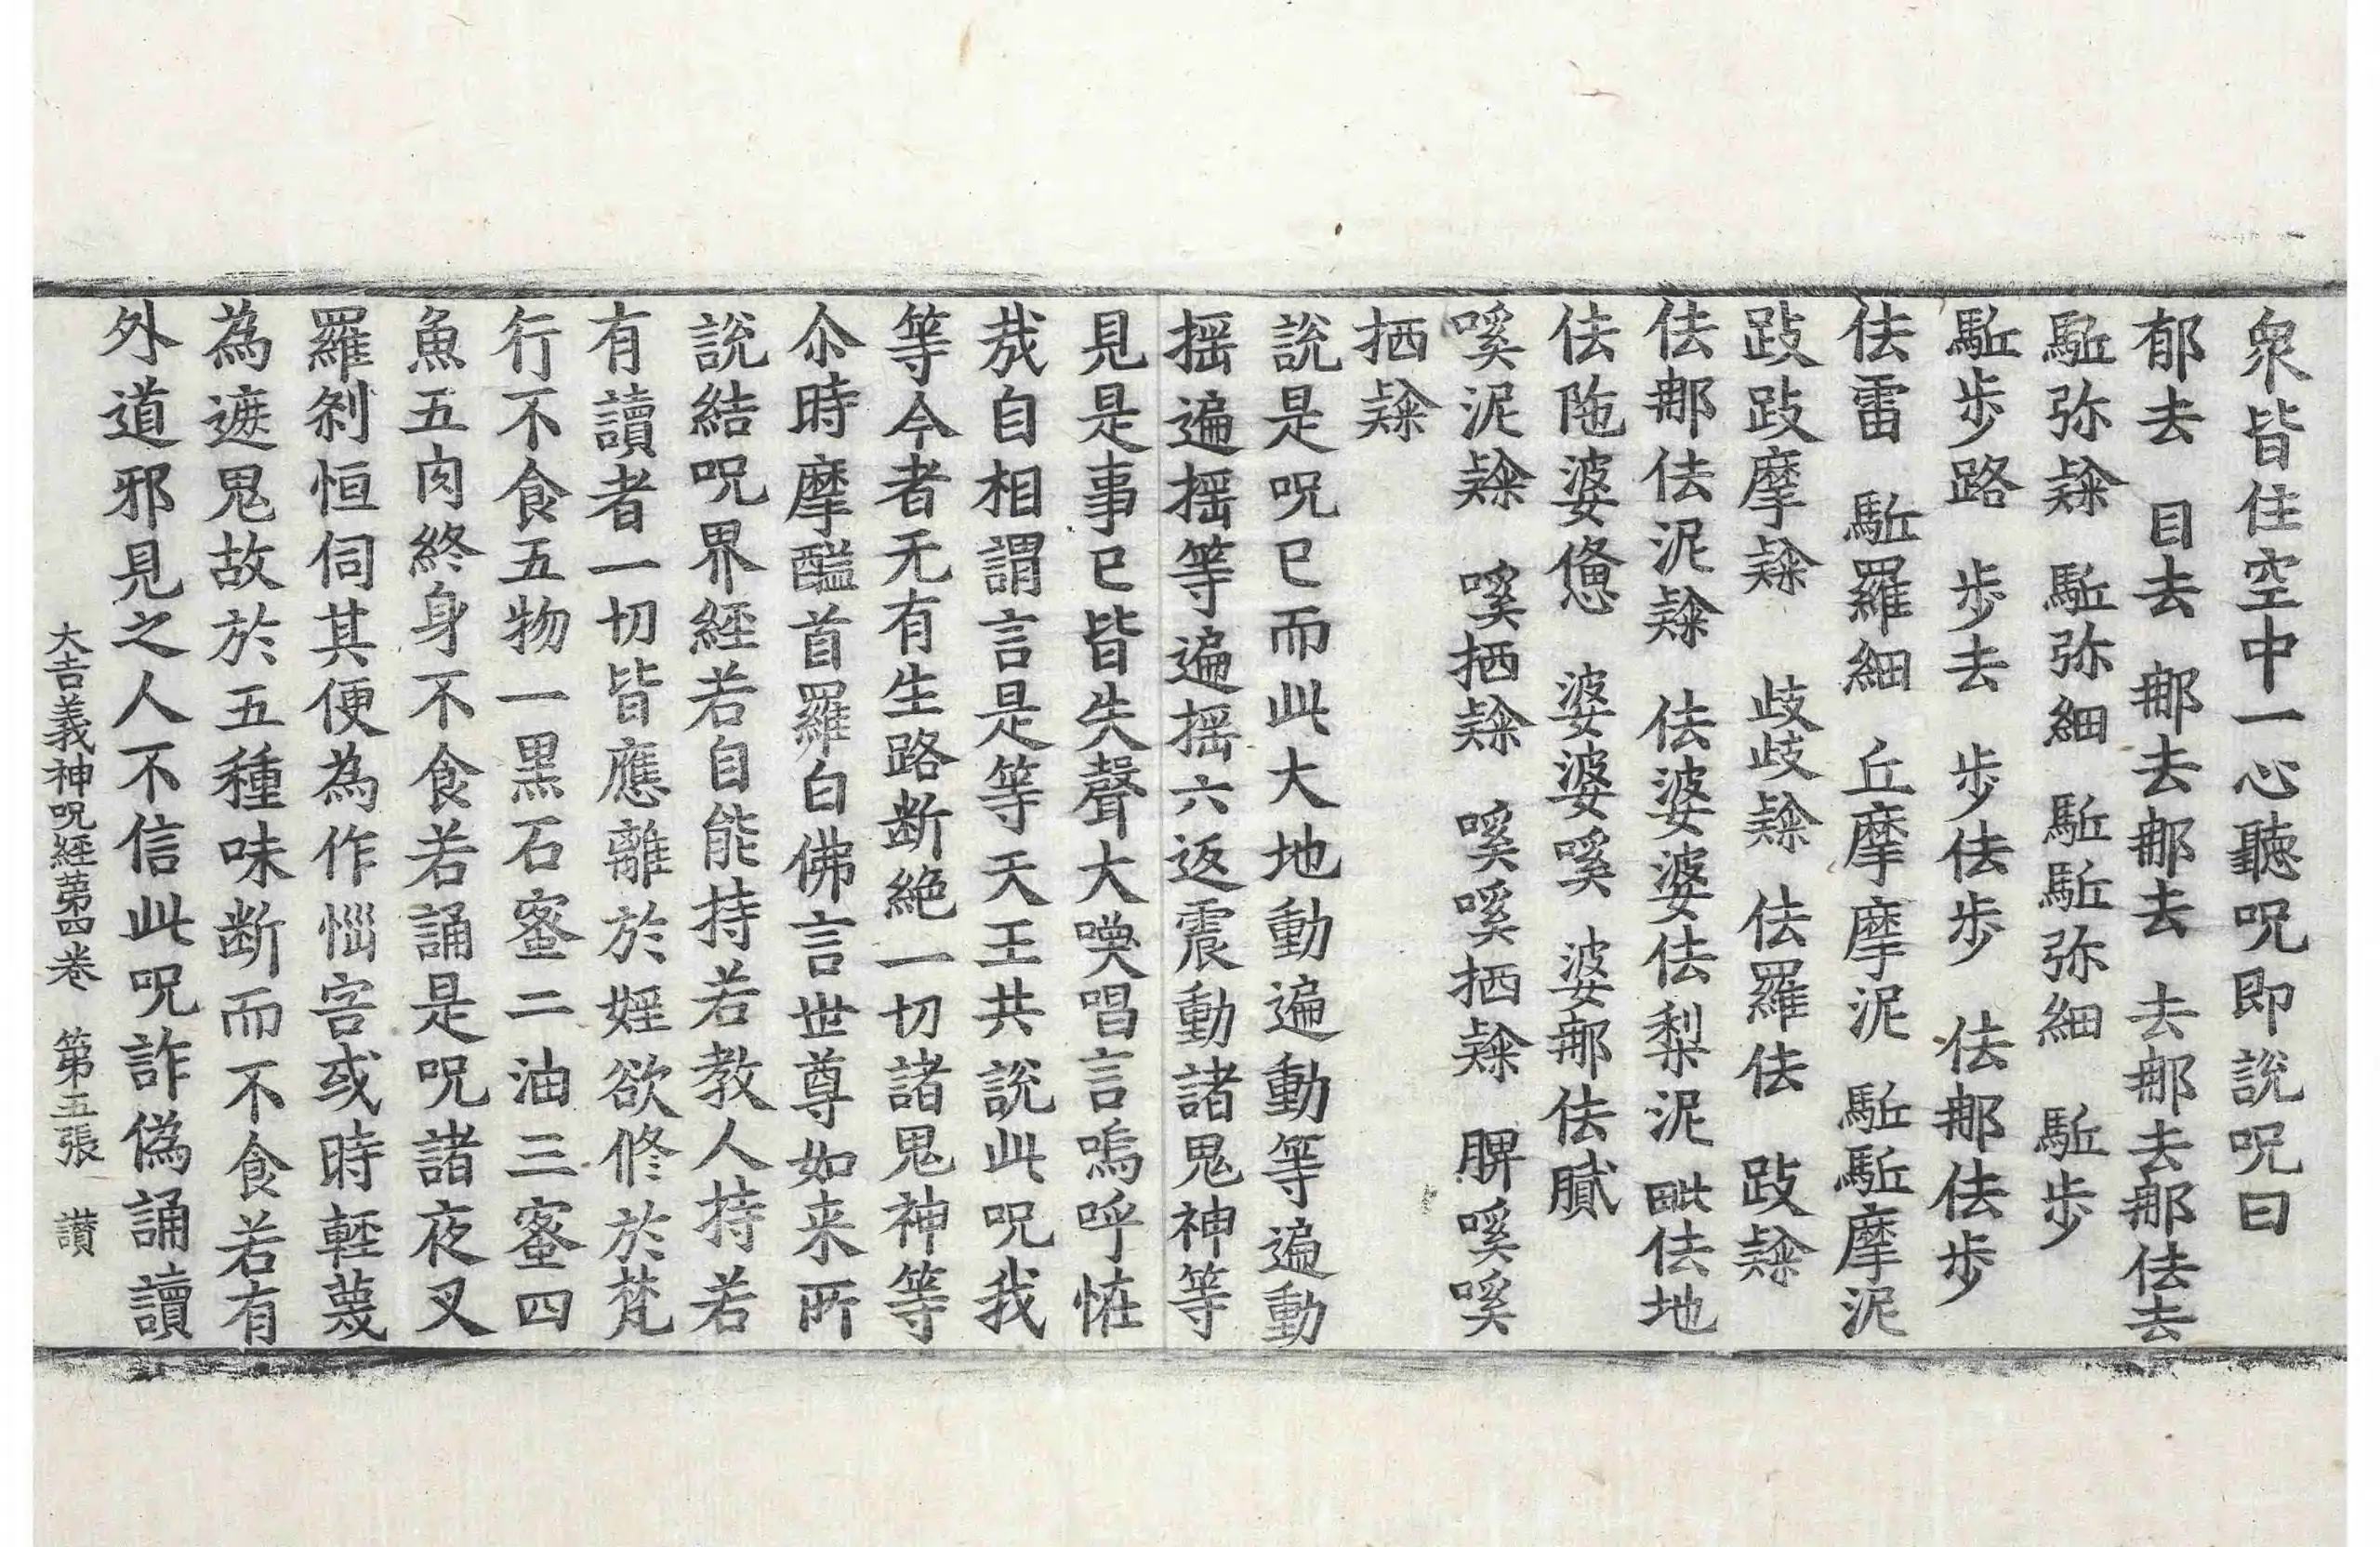 衆皆住空中一心聽呪即說呪曰
郁去 目去 郍去郍去 去郍去郍佉去
駈弥隸 駈弥細 駈駈弥細 駈步
駈步路 步去 步佉步 佉郍佉步
佉雷 駈羅細 丘摩摩泥 駈駈摩泥
跂跂摩隸 歧歧隸 佉羅佉 跂隸
佉郍佉泥隸 佉婆婆佉梨泥 毗佉地
佉陁婆偬 婆婆嘆 婆郍佉膩
嘆泥隸 嘆栖隸 嘆嘆栖隸 脾嘆嘆
栖隸
說是呪已而此大地動遍動等遍動
揺遍揺等遍揺六返震動諸鬼神等
見是事已皆失聲大喚唱言嗚呼恠
㢤自相謂言是等天王共說此呪我
等今者无有生路断絶一切諸鬼神等
尒時摩醯首羅白佛言世尊如来所
說結呪界經若自能持若教人持若
有讀者一切皆應離於婬欲修於梵
行不食五物一黒石蜜二油三蜜四
魚五肉終身不食若誦是呪諸夜叉
羅刹恒伺其便為作惱害或時輕蔑
為遮鬼故於五種味断而不食若有
外道邪見之人不信此呪詐偽誦讀
大吉義神呪經苐四卷 第五張 讃